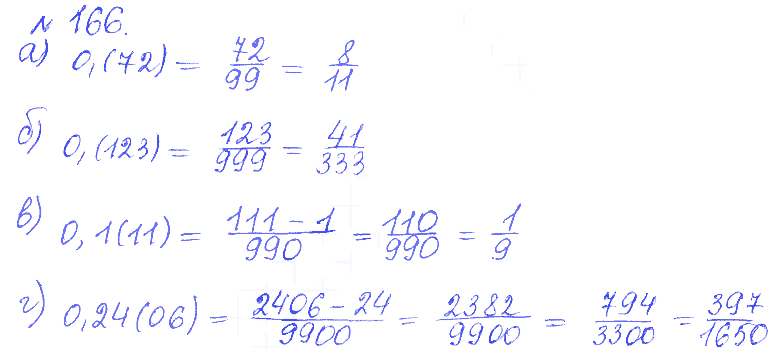 № 166.
а) 0,(72) = 72/99 = 8/11
б) 0,(123) = 123/999 = 41/333
в) 0,1(11) = 111-1/990 = 110/990 = 1/9
г) 0,24(06) = 2406-24/9900 = 2382/9900 = 794/3300 = 397/1650